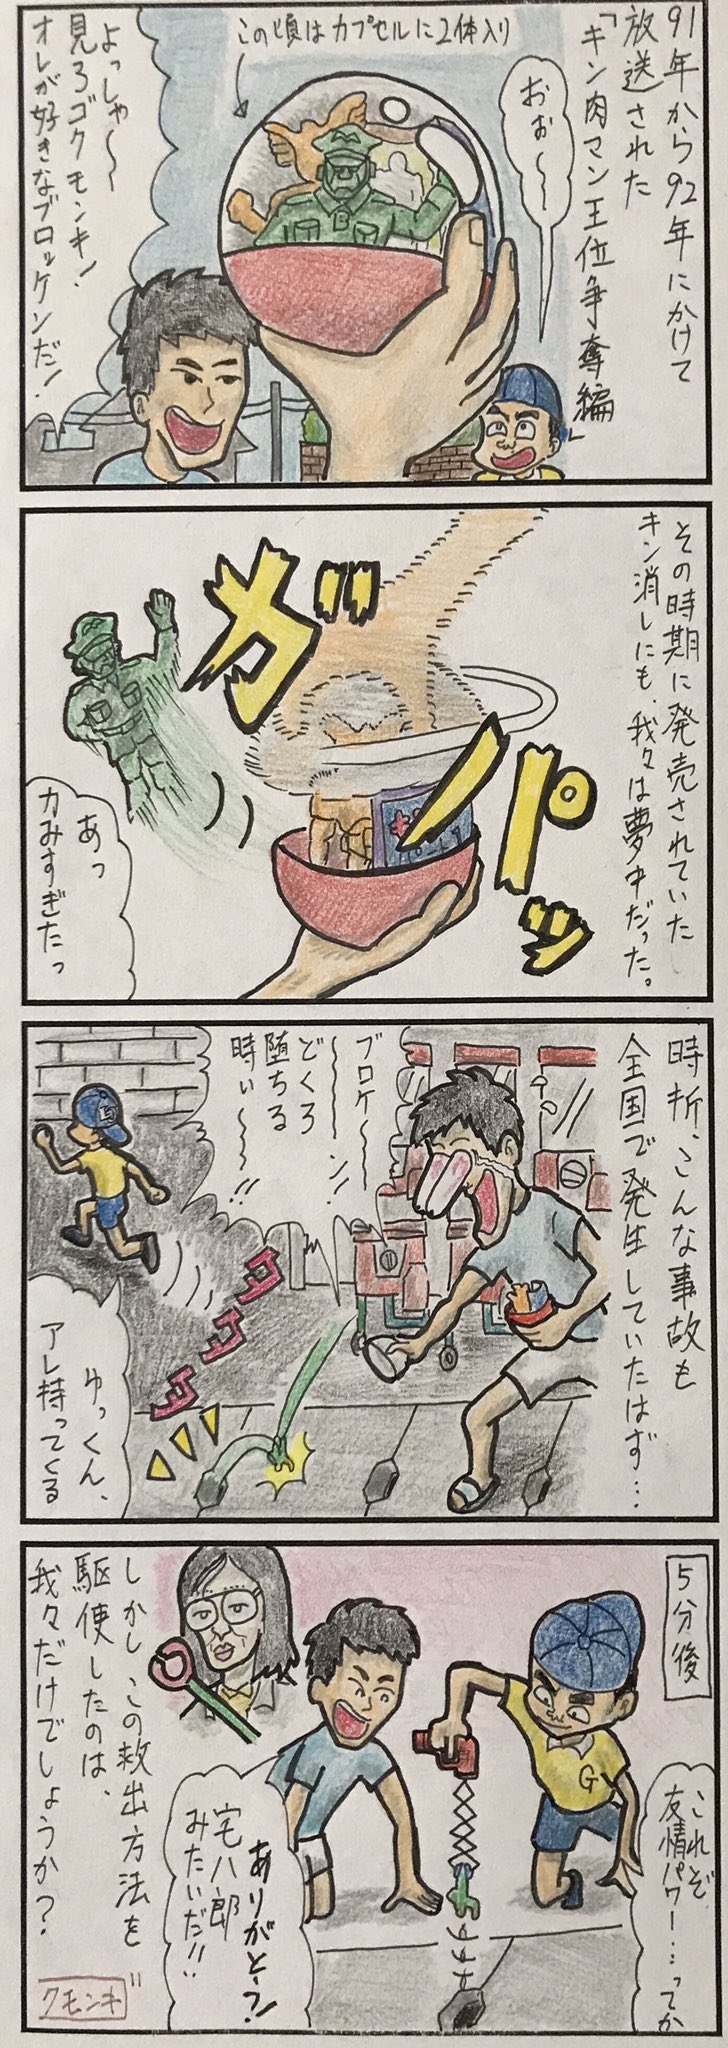 91年から92年にかけて
放送された
「キン肉マン王位争奪編」
おぉ〜〜
この頃はカプセルに2体入り
よっしゃ〜〜
見ろゴクモンキ!
オレが好きなブロッケンだ!
その時期に発売されていた
キン消しにも、我々は夢中だった。
ガパッ
あっ
力みすぎたっ
時折、こんな事故も
全国で発生していたはず…
ブロケ〜〜ン!!
どくろ
堕ちる
時ぃ〜〜!!
ゆっくん、
アレ持ってくる
5分後
これぞ
友情パワー…ってか
G
ありがとう!
宅八郎
みたいだ!!
しかしこの救出方法を
駆使したのは、
我々だけでしょうか?
クモンキ